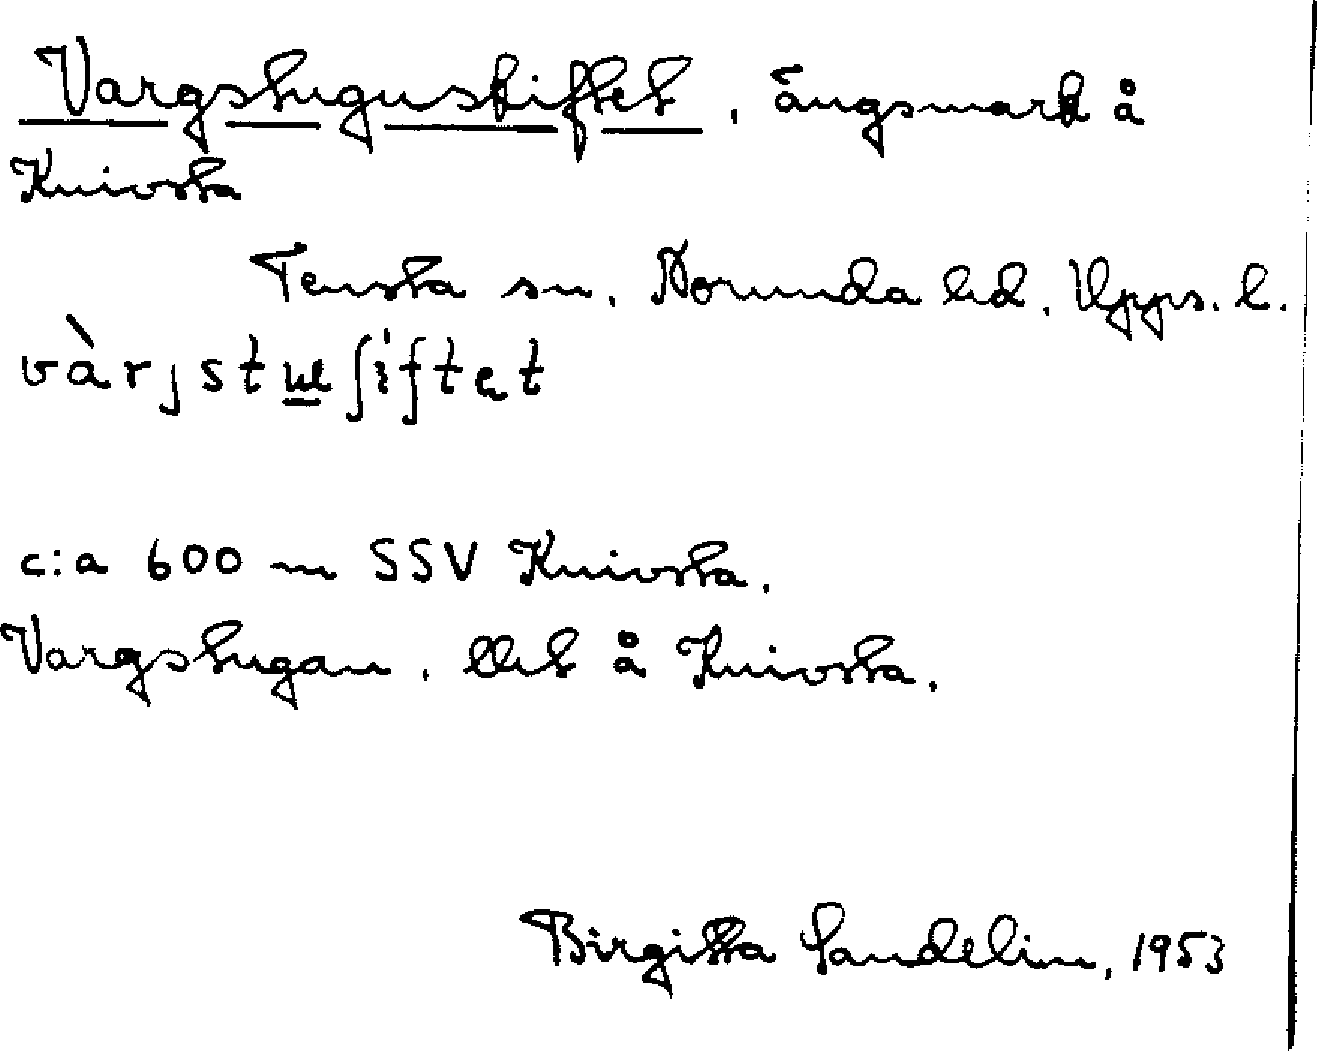 Vargstuguskiftet, ängsmark å
Knivsta
Tensta sn. Norunda hd. Upps. l.
c:a 600 m SSV Knivsta.
Vargstugan, å Knivsta.
Birgitta Sandelin, 1953